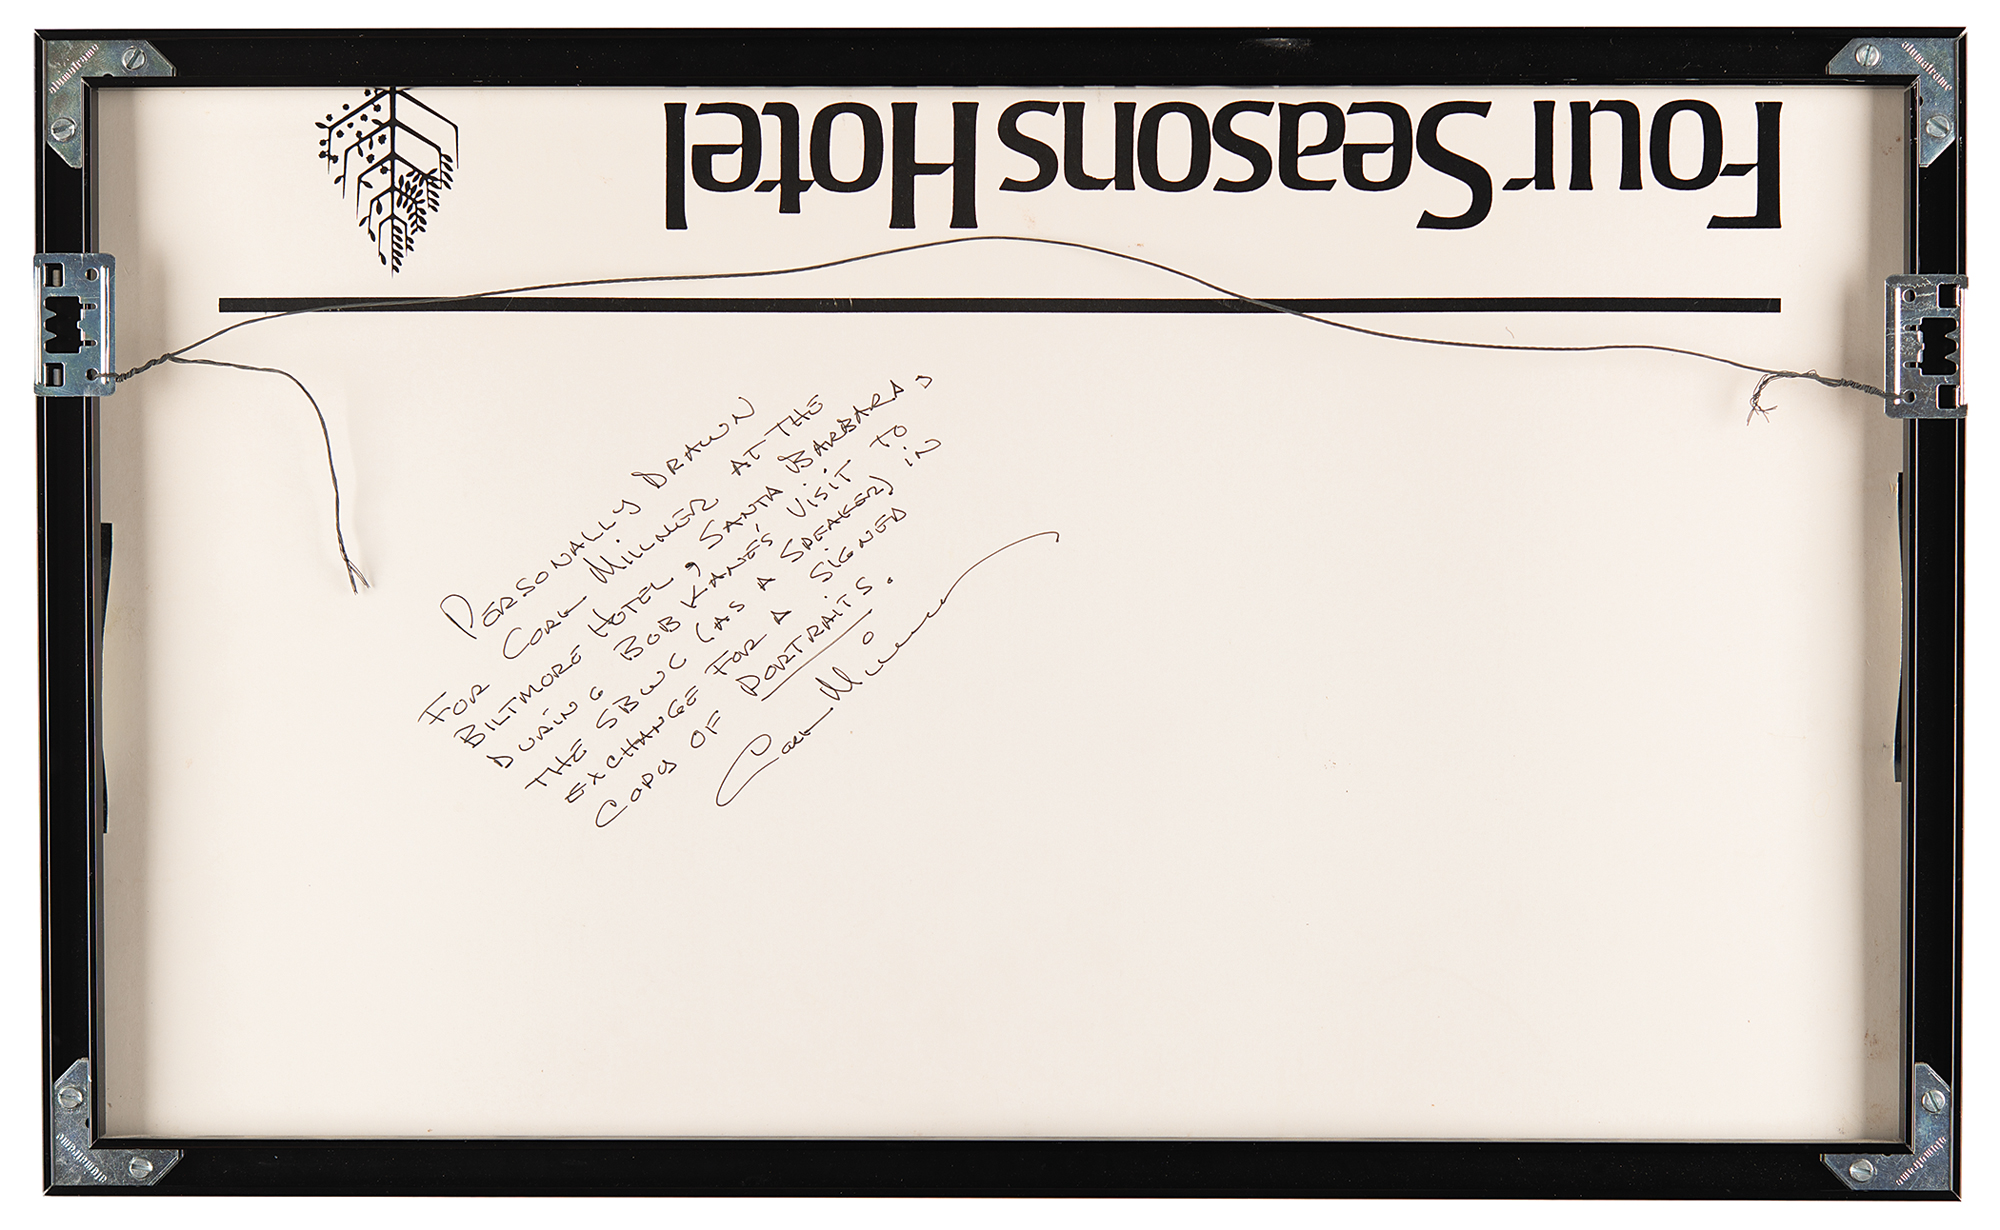 Four Seasons Hotel
PERSONALLY DRAWN
FOR CORK MILLNER AT THE
BILTMORE HOTEL, SANTA BARBARA,
DURING BOB KANE'S VISIT TO
THE SBWC (AS A SPEAKER) IN
EXCHANGE FOR A SIGNED
COPY OF PORTRAITS.
Cork Millner